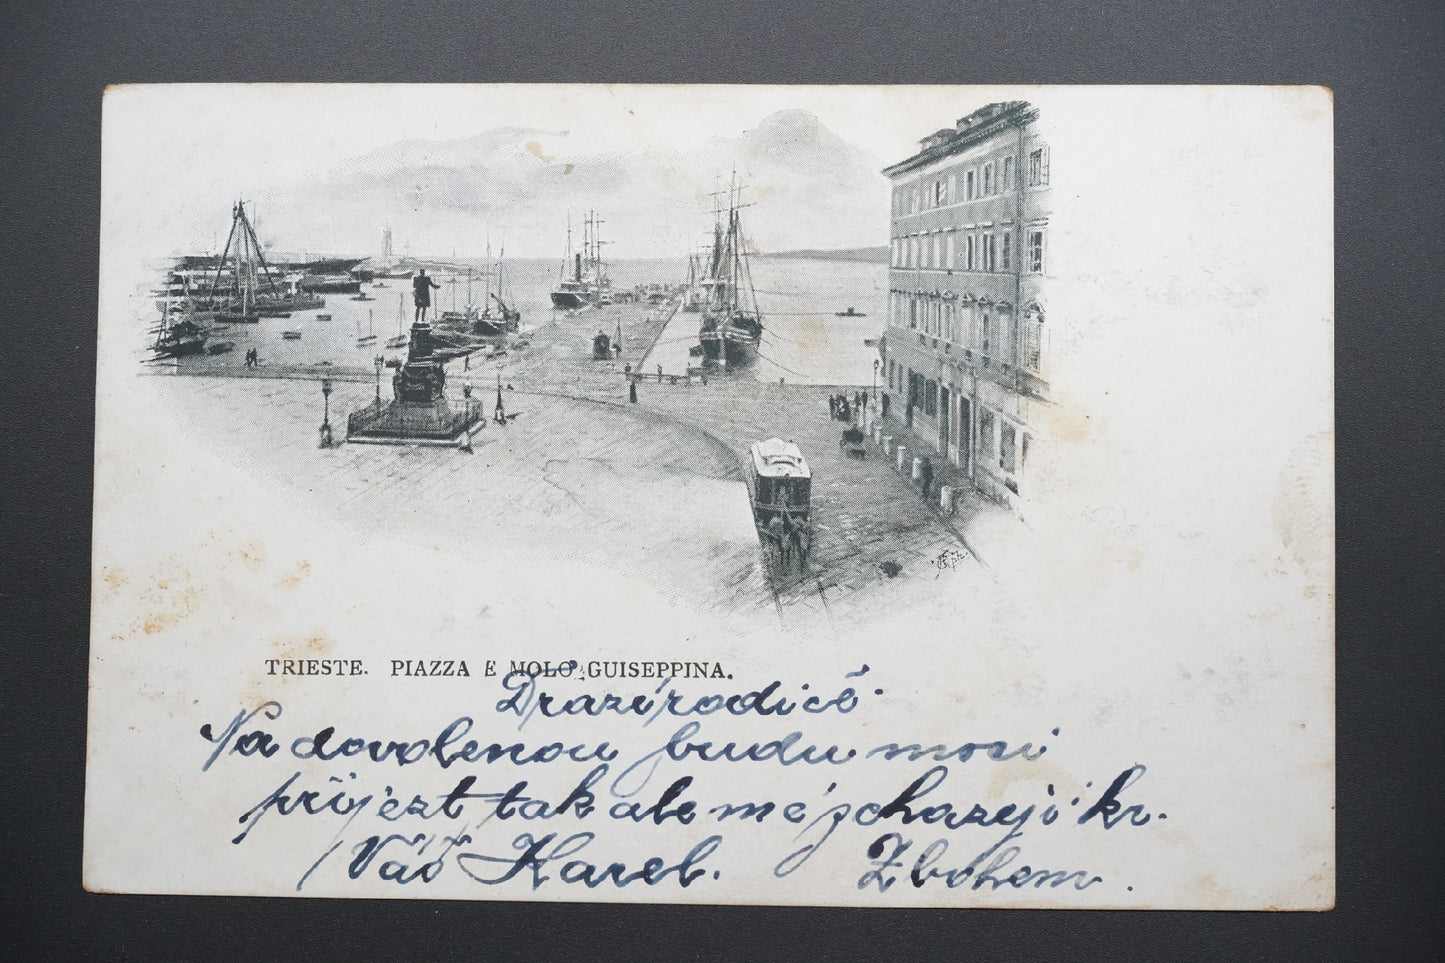 TRIESTE. PIAZZA E MOLO GUISEPPINA.
Drazí rodicě.
Na dovolenou budu moci
přijezt tak ale mě zchazeji kr.
Váš Karel. Zbohem.